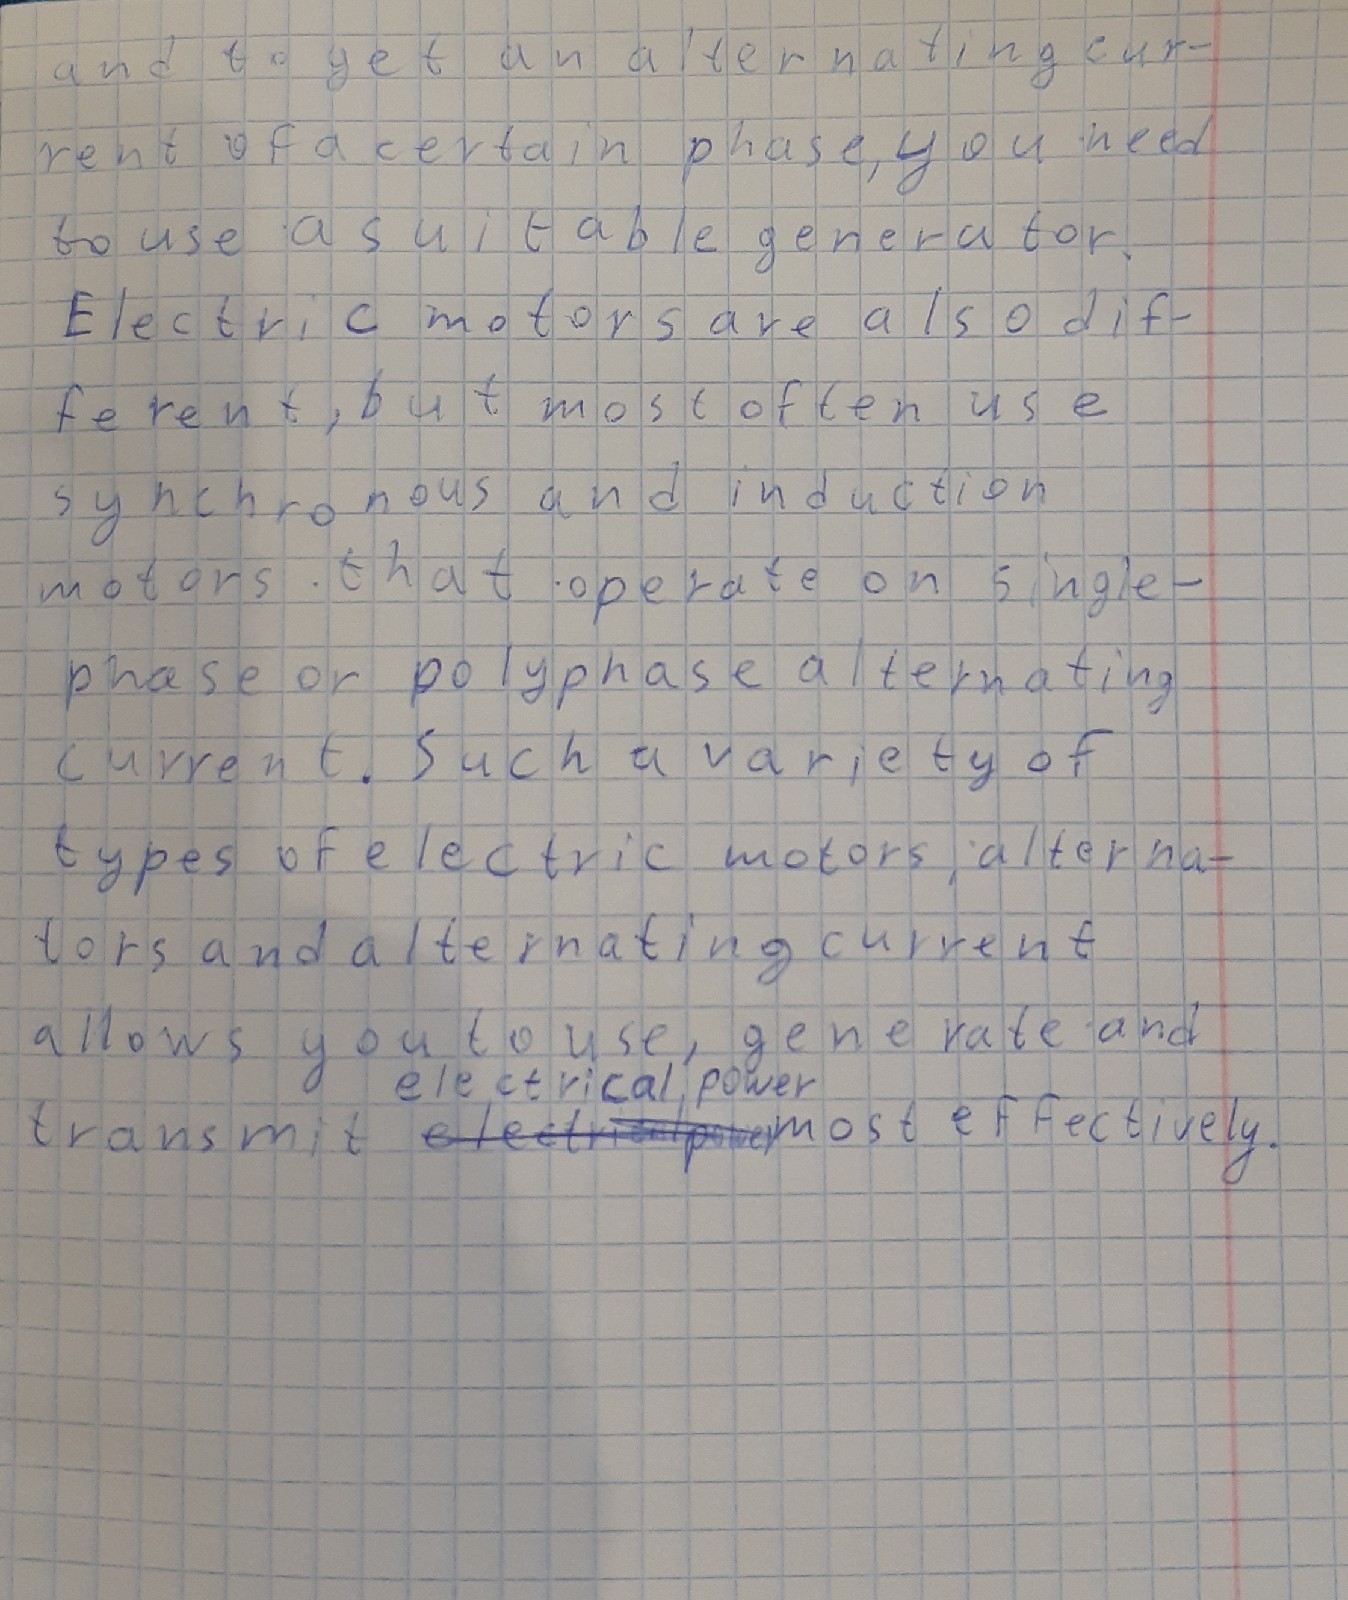 and to get an alternating cur-
rent of a certain phase, you need
to use a suitable generator.
Electric motors are also dif-
ferent, but most often use
synchronous and induction
motors that operate on single-
phase or polyphase alternating
current. Such a variety of
types of electric motors, alterna-
tors and alternating current
allows you to use, generate and
electrical power
transmit electrical power most effectively.